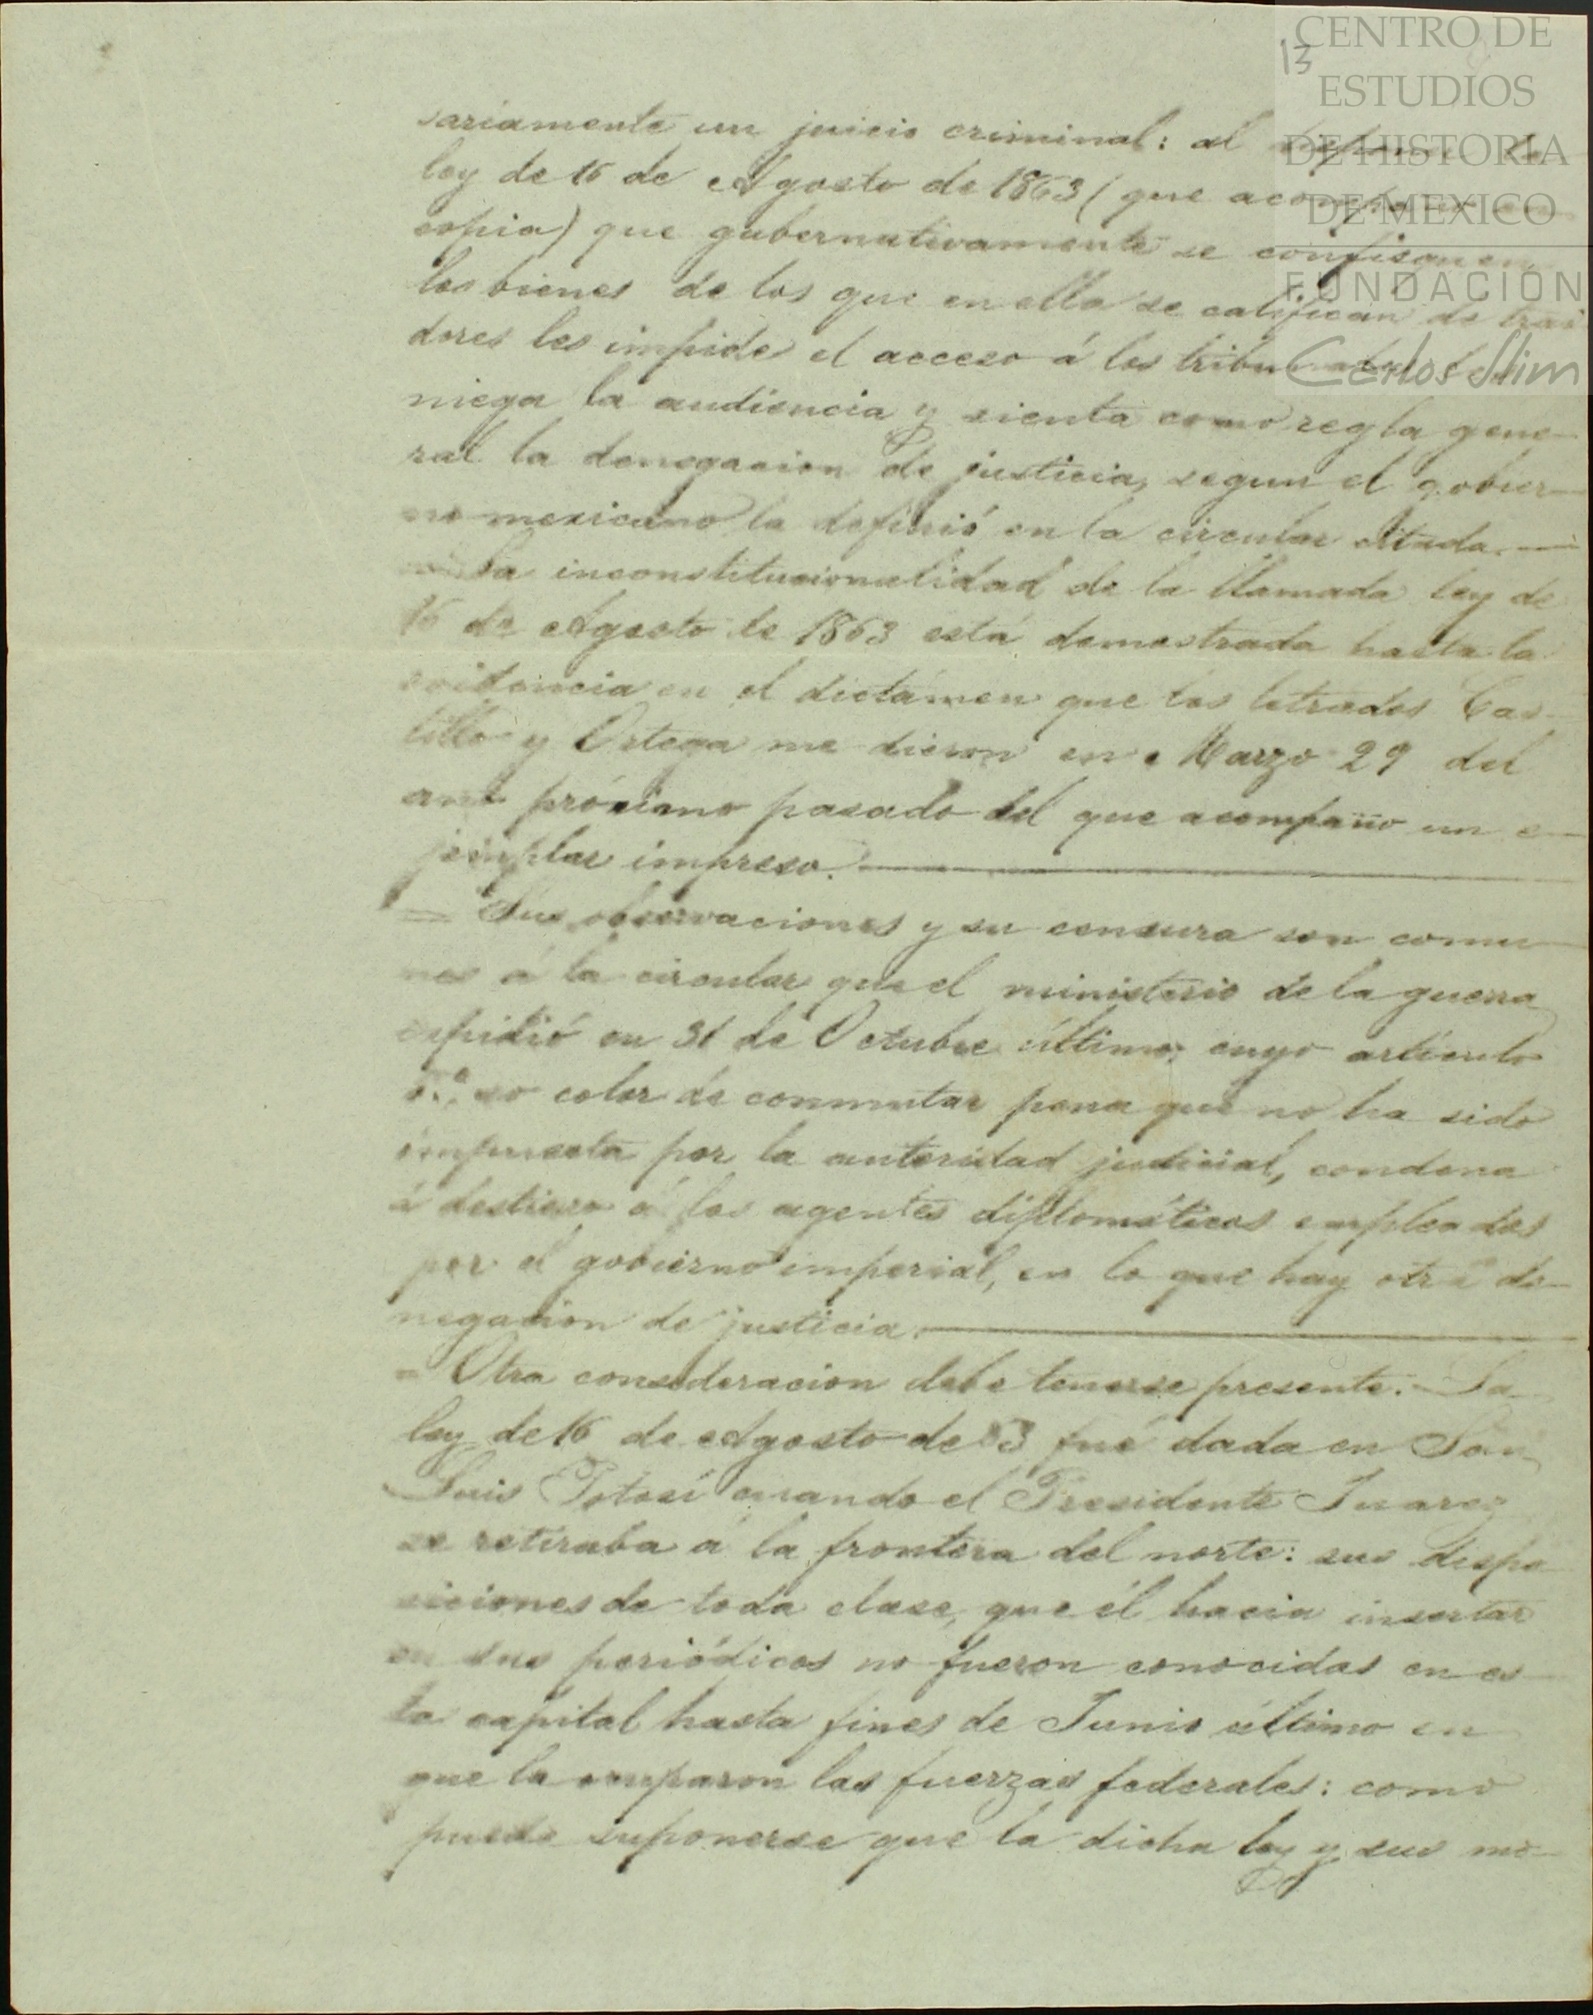 CENTRO DE
ESTUDIOS
DE HISTORIA
DE MEXICO
FUNDACIÓN
Carlos Slim
13
sariamente un juicio criminal: al
ley de 16 de Agosto de 1863 (que
copia) que gubernativamente se confisquen
los bienes de los que en ella se califican de trai
dores les impide el acceso á los
niega la audiencia y sienta como regla gene-
ral la denegacion de justicia, segun el gobier-
no mexicano la definió en la circular citada.—
La inconstitucionalidad de la llamada ley de
16 de Agosto de 1863 está demostrada hasta la
evidencia en el dictámen que los letrados Cas-
tillo y Ortega me dieron en Marzo 29 del
año próximo pasado del que acompaño un e-
jemplar impreso.—
= Sus observaciones y su censura son comu-
nes á la circular que el ministerio de la guerra
expidió en 31 de Octubre último; cuyo artículo
so color de conmutar pena que no ha sido
impuesta por la autoridad judicial, condena
á destierro á los agentes diplomáticos empleados
por el gobierno imperial, en lo que hay otra de-
negacion de justicia.—
= Otra consideracion debe tenerse presente. La
ley de 16 de Agosto de 63 fué dada en San
Luis Potosí cuando el Presidente Juarez
se retiraba á la frontera del norte: sus dispo
siciones de toda clase, que él hacia insertar
en sus periódicos no fueron conocidas en es-
ta capital hasta fines de Junio último en
que la ocuparon las fuerzas federales: como
puede suponerse que la dicha ley y sus mo-